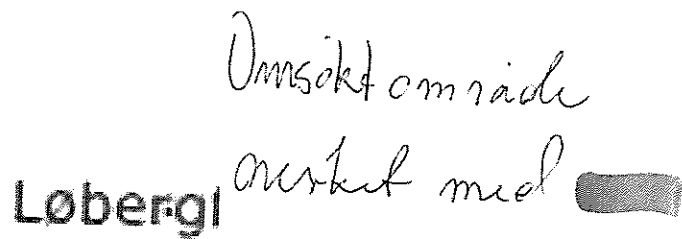 Omsøkt område
merket med
Løbergl